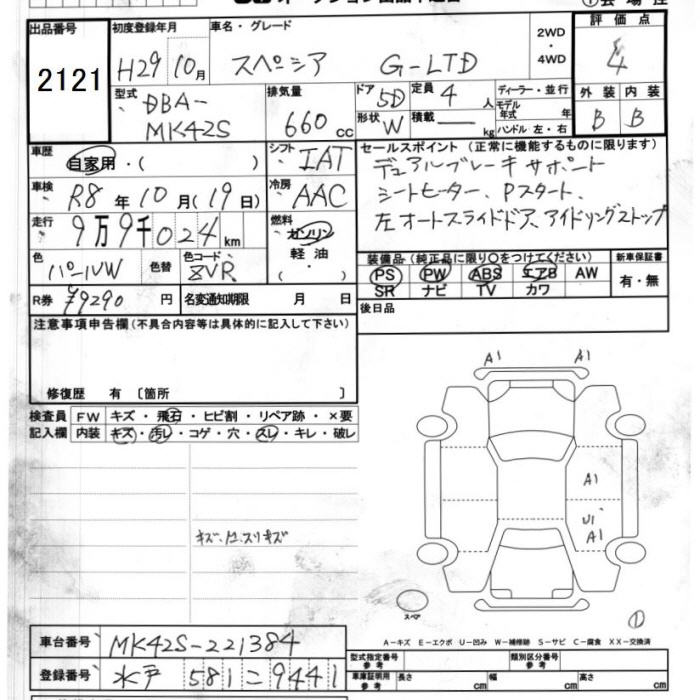 出品番号 2121
初度登録年月 H29 10月
車名・グレード スペーシア G-LTD
2WD・4WD
評価点 4
型式 DBA-MK42S
排気量 660 cc
ドア 5D
形状 W
定員 4 人
積載 kg
ディーラー・並行
モデル年式 年
ハンドル 左・右
外装 B
内装 B
車歴 自家用・( )
シフト IAT
セールスポイント (正常に機能するものに限ります)
デュアルブレーキサポート
シートヒーター、Pスタート、
左オートスライドドア、アイドリングストップ
車検 R8年10月(19日)
冷房 AAC
走行 9万9千024km
燃料 ガソリン 軽油 ・
色 パールW
色替
色コード ZVR
装備品 (純正品に限り○をつけてください)
PS PW ABS エアB AW
SR ナビ TV カワ
新車保証書 有・無
R券 ¥9290 円
名変通知期限 月 日
後日品
注意事項申告欄 (不具合内容等は具体的に記入して下さい)
修復歴 有 〔箇所 〕
検査員記入欄
FW キズ・飛石・ヒビ割・リペア跡・×要
内装 キズ・汚レ・コゲ・穴・スレ・キレ・破レ
A1 A1
A1
U1
A1
スペア
①
A-キズ E-エクボ U-凹み W-補修跡 S-サビ C-腐食 XX-交換済
車台番号 MK42S-221384
登録番号 水戸 581 ニ 9441
型式指定番号 参考
類別区分番号 参考
車庫証明用 参考 長さ cm 幅 cm 高さ cm